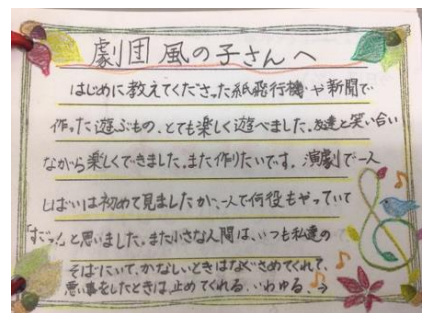 劇団風の子さんへ
はじめに教えてくださった紙飛行機や新聞で
作った遊ぶもの、とても楽しく遊べました。友達と笑い合い
ながら楽しくできました。また作りたいです。演劇で一人
しばいは初めて見ましたが、一人で何役もやっていて
「すごっ!」と思いました。また小さな人間は、いつも私達の
そばにいて、かなしいときはなぐさめてくれて、
悪い事をしたときは、止めてくれる、いわゆる、→